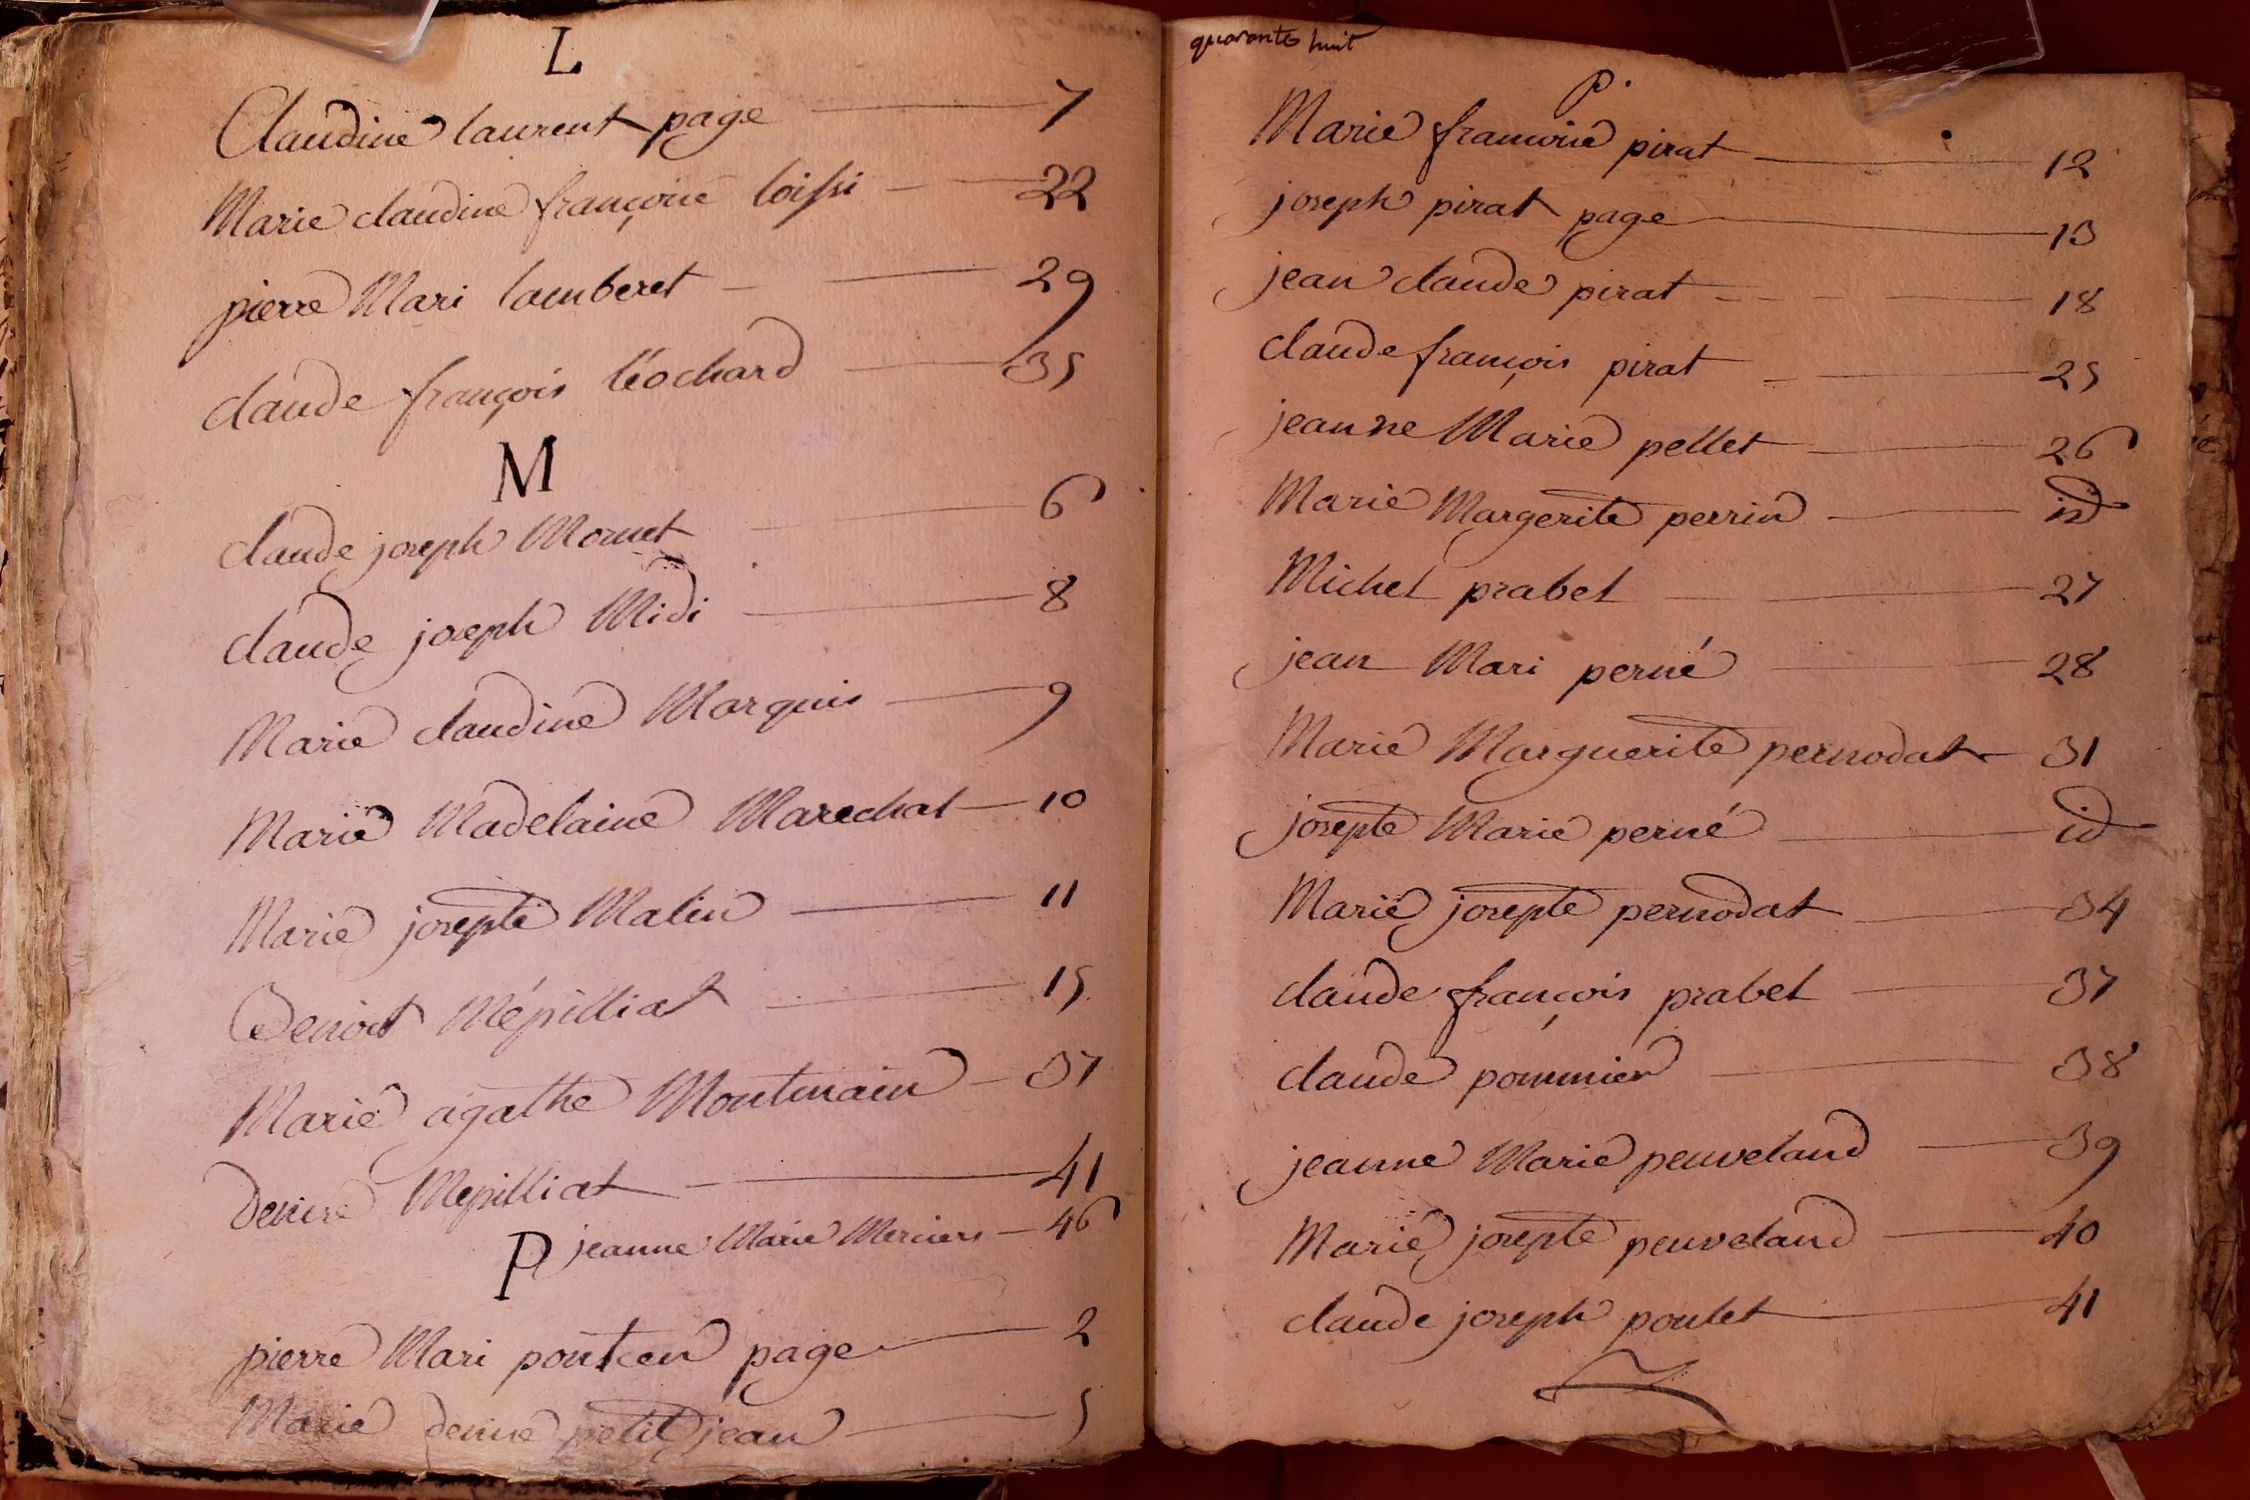 L
Claudine laurent page 7
Marie claudine françoise loissi 22
pierre Mari lamberet 29
claude françois léochard 35
M
claude joseph Mornet 6
claude joseph Midi 8
Marie claudine Marquis 9
Marie Madelaine Marechal 10
Marie josepte Matin 11
Benoit Mépilliat 15
Marie agathe Montmain 37
Denise Mepilliat 41
jeanne Marie Merciers 46
P
pierre Mari pontcen page 2
Marie denise petitjean 5
quarante huit
P.
Marie francoise pirat 12
joseph pirat page 13
jean claude pirat 18
claude françois pirat 25
jeanne Marie pellet 26
Marie Margerite perrin id
Michel prabel 27
jean Mari perné 28
Marie Marguerite pernodat 31
josepte Marie perné id
Marie josepte pernodat 34
claude françois prabel 37
claude pommier 38
jeanne Marie peuveland 39
Marie josepte peuveland 40
claude joseph poulet 41